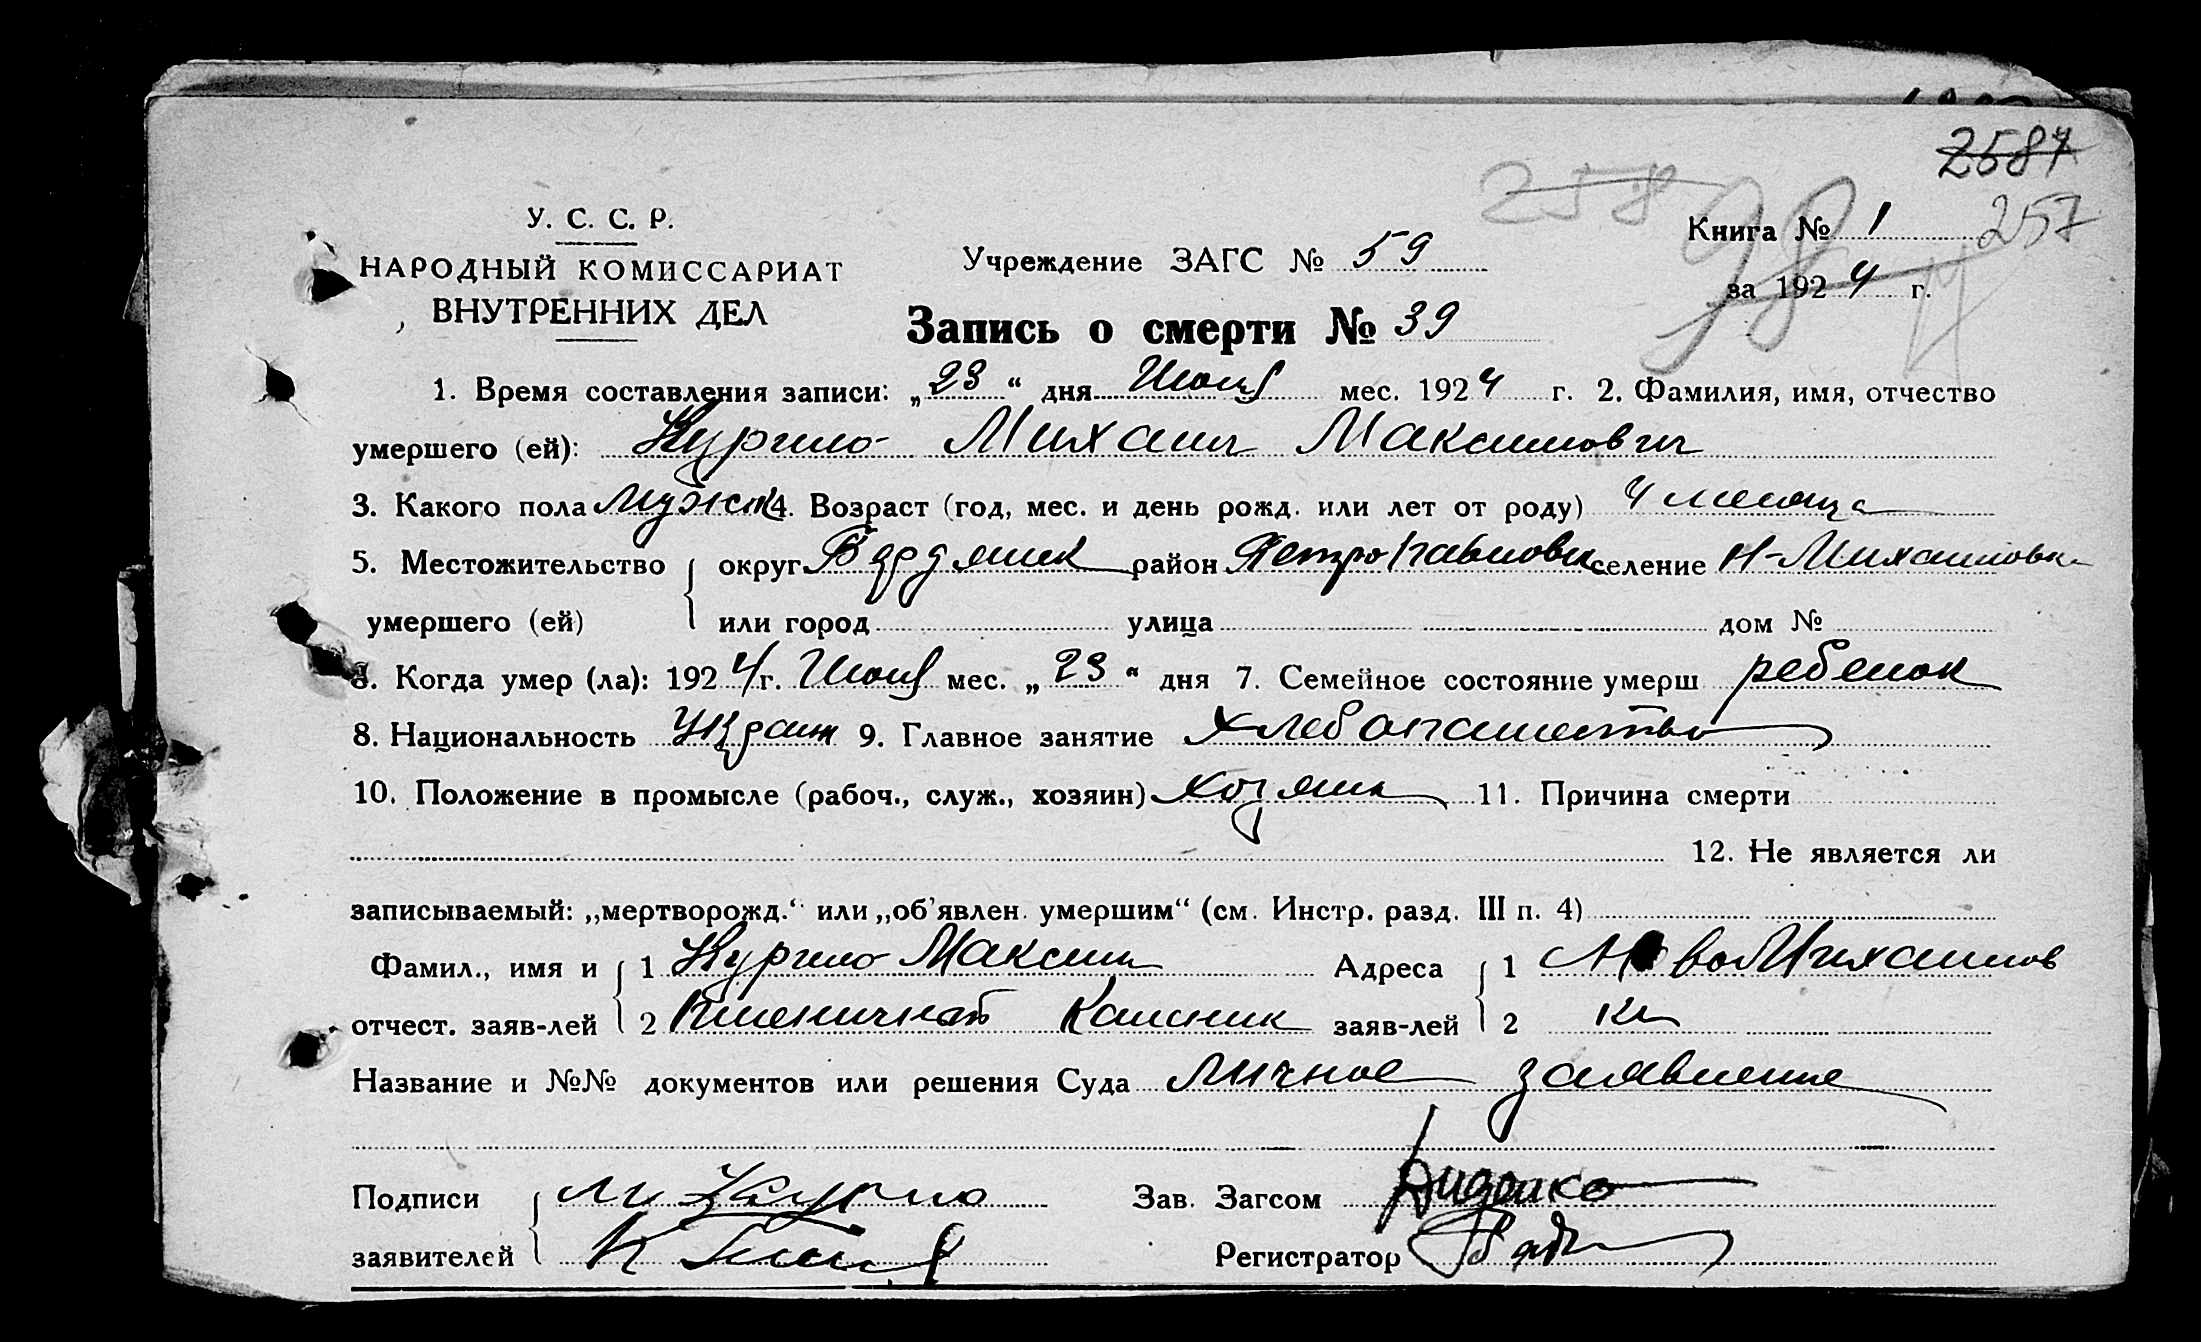 2587
258
98
257
У. С. С. Р.
НАРОДНЫЙ КОМИССАРИАТ
ВНУТРЕННИХ ДЕЛ
Учреждение ЗАГС № 59
Книга № 1
за 1924 г.
Запись о смерти № 39
1. Время составления записи: „23“ дня Июня мес. 1924 г. 2. Фамилия, имя, отчество
умершего (ей): Курило Михаил Максимович
3. Какого пола мужск 4. Возраст (год, мес. и день рожд. или лет от роду) 4 месяца
5. Местожительство округ Бердянск район Петропавловск селение Н-Михайловка
умершего (ей) или город улица дом №
6. Когда умер (ла): 1924 г. Июня мес. „23“ дня 7. Семейное состояние умерш ребенок
8. Национальность Украин 9. Главное занятие Хлебопашество
10. Положение в промысле (рабоч., служ., хозяин) хозяин 11. Причина смерти
12. Не является ли
записываемый: „мертворожд.“ или „об’явлен. умершим“ (см. Инстр. разд. III п. 4)
Фамил., имя и 1 Курило Максим Адреса 1 Ново Михайлов
отчест. заяв-лей 2 заяв-лей 2 ка
Название и №№ документов или решения Суда личное заявление
Подписи М Курило Зав. Загсом
заявителей Регистратор